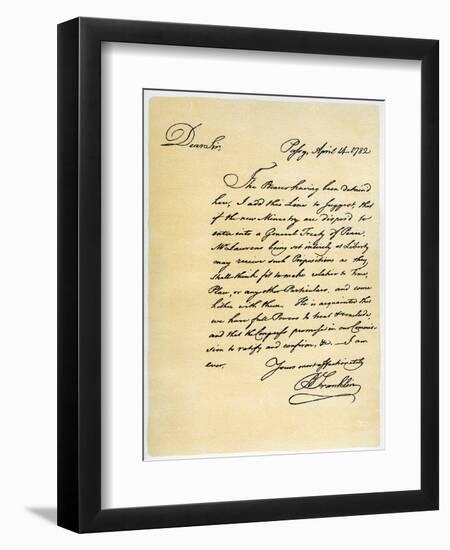 Dear Sir,
Passy, April 14. 1782
The Bearer having been detained
here, I add this Line to suggest, that
if the new Ministry are dispos'd to
enter into a General Treaty of Peace,
Mr Laurens being set intirely at Liberty
may receive such Propositions as they
shall think fit to make relative to Time,
Place, or any other Particulars, and come
hither with them. He is acquainted that
we have full Powers to treat & conclude,
and that the Congress promise in our Commis-
sion to ratify and confirm, &c. — I am
ever,
Yours most affectionately
B Franklin